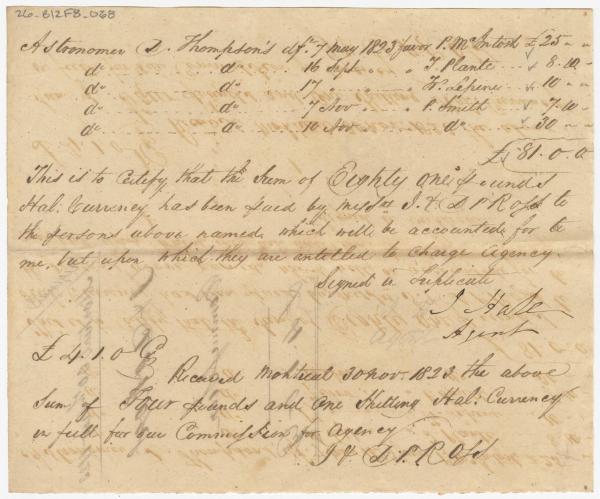 26-B12F8-068
Astronomer D. Thompson's dft. 7 May 1823 favor P. McIntosh £ 25 " "
do do 16 Sept " " J Plante 8.10 "
do do 17 " " " 10 " "
do do 7 Nov " P. Smith 7.10
do do 10 Nov " do 30 " "
£ 81.0.0
This is to Certify that the Sum of Eighty one pounds
Hal: Currency has been paid by Messrs J. & D. P. Ross to
the persons above named, which will be accounted for by
me, but upon which they are entitled to charge Agency.
Signed in Duplicate
J Hale
Agent
£ 4.1.0
Received Montreal 30 Nov. 1823 the above
Sum of Four pounds and One Shilling Hal: Currency
in full for our Commission for agency.
J & D. P. Ross